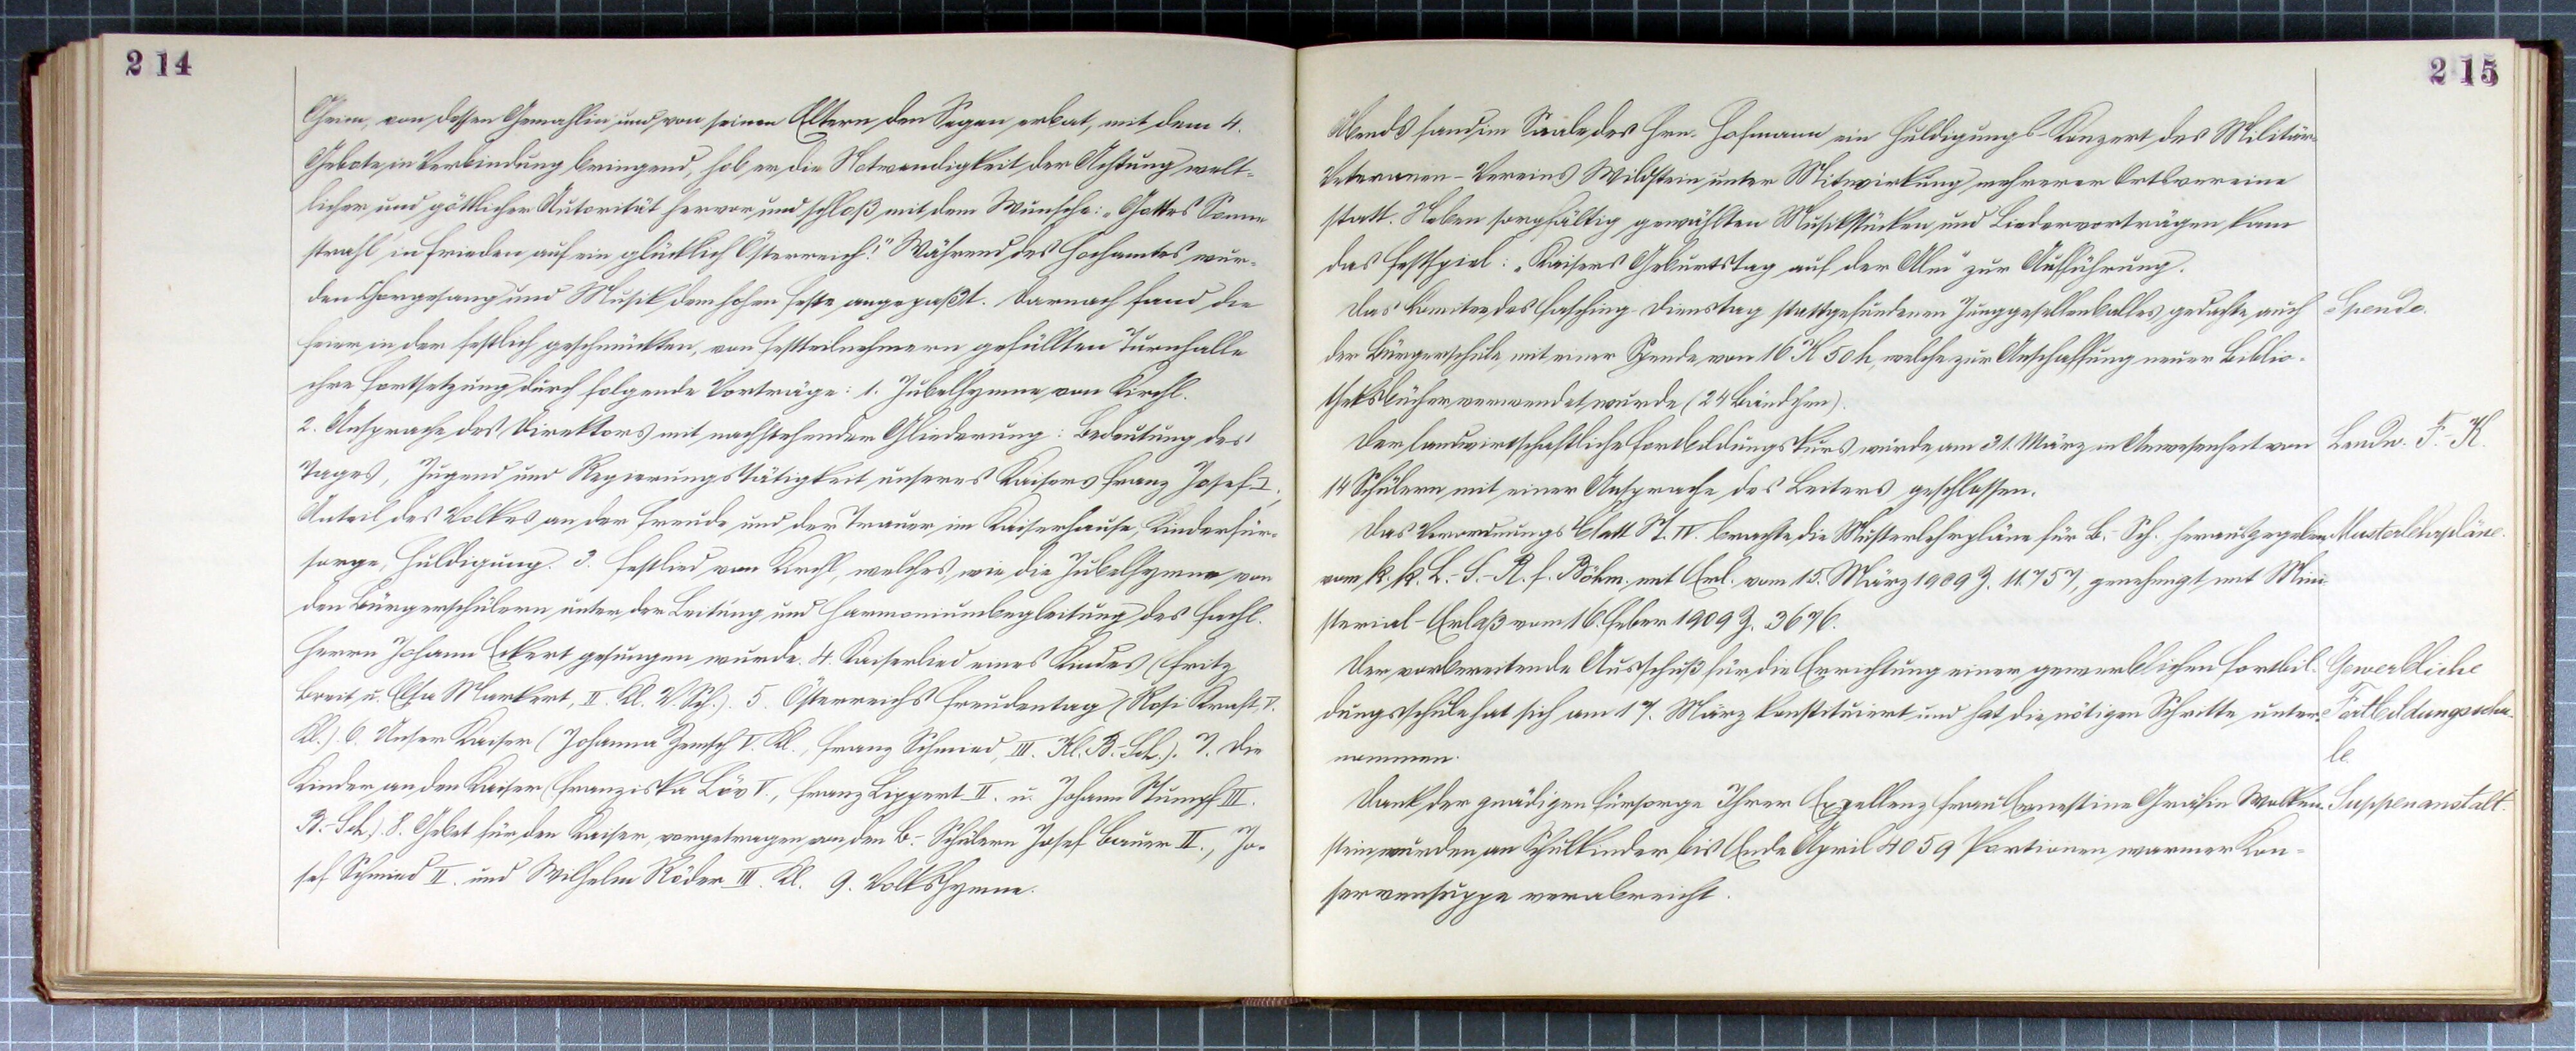 214
Oheim, von dessen Gemahlin und von seinen Eltern den Segen erbat, mit dem 4.
Gebote in Verbindung bringend, hob er die Notwendigkeit der Achtung welt-
licher und göttlicher Autorität hervor und schloß mit dem Wunsche: „Gottes Sonne
strahl' in Frieden auf ein glücklich Österreich!" Während des Hochamtes wur-
den Chorgesang und Musik dem hohen Feste angepaßt. Darnach fand die
Feier in der festlich geschmückten, von Festteilnehmern gefüllten Turnhalle
ihre Fortsetzung durch folgende Vorträge: 1. Jubelhymne von Kirchl.
2. Ansprache des Direktors mit nachstehender Gliederung: Bedeutung des
Tages, Jugend und Regierungstätigkeit unseres Kaisers Franz Josef I.,
Anteil des Volkes an der Freude und der Trauer im Kaiserhause, Kinderfür-
sorge, Huldigung. 3. Festlied von Kirchl, welches, wie die Jubelhymne von
den Bürgerschülern unter der Leitung und Harmoniumbegleitung des Fachl.
Herrn Johann Eckert gesungen wurde. 4. Kaiserlied eines Kindes (Fritz
Breit u. Elsa Markert, II. Kl. V. Sch.). 5. Österreichs Freudentag (Rosi Kraft, V.
Kl.). 6. Unser Kaiser (Johanna Zemsch V. Kl., Franz Schmied, III. Kl. B.-Sch.). 7. Die
Kinder an den Kaiser (Franziska Löv V., Franz Lippert II. u. Johann Stumpf III.
B.-Sch.). 8. Gebet für den Kaiser, vorgetragen von den B.-Schülern Josef Bauer II., Jo-
sef Schmied II. und Wilhelm Röder III. Kl. 9. Volkshymne.
215
Abends fand im Saale des Hrn. Hofmann ein Huldigungs-Konzert des Militär-
Veteranen-Vereins Wildstein unter Mitwirkung mehrerer Ortsvereine
statt. Neben sorgfältig gewählten Musikstücken und Liedervorträgen kam
das Festspiel: „Kaisers Geburtstag auf der Alm" zur Aufführung.
Das Komitee des Fasching-Dienstag stattgefundenen Junggesellenballes gedachte auch
Spende.
der Bürgerschule mit einer Spende von 16 K 50 h, welche zur Anschaffung neuer Biblio-
theksbücher verwendet wurde (24 Bändchen).
Der landwirtschaftliche Fortbildungskurs wurde am 31. März in Anwesenheit von
Landw. F.-K.
14 Schülern mit einer Ansprache des Leiters geschlossen.
Das Verordnungsblatt St. IV. brachte die Musterlehrpläne für B.-Sch. herausgegeben
Musterlehrpläne.
vom k. k. L.-S.-R. f. Böhm. mit Erl. vom 15. März 1909 Z. 11.757, genehmigt mit Mini-
sterial-Erlaß vom 16. Feber 1909 Z. 3676.
Der vorbereitende Ausschuß für die Errichtung einer gewerblichen Fortbil-
Gewerbliche
dungsschule hat sich am 17. März konstituiert und hat die nötigen Schritte unter-
Fortbildungsschu-
nommen.
le.
Dank der gnädigen Fürsorge Ihrer Exzellenz Frau Ernestine Gräfin Wolken-
Suppenanstalt.
stein wurden an Schulkinder bis Ende April 4059 Portionen warmer Kon-
servensuppe verabreicht.